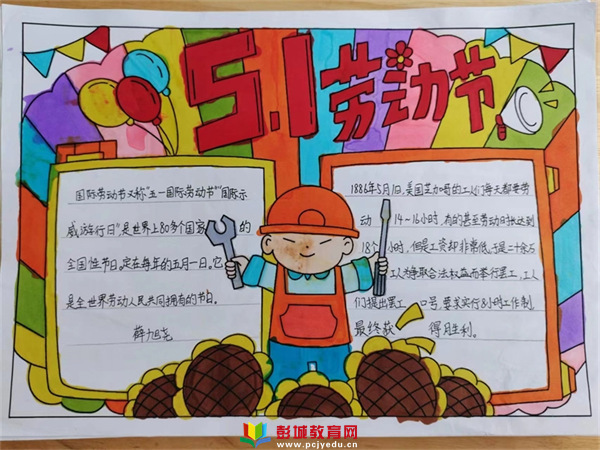 5.1劳动节
国际劳动节又称"五一国际劳动节""国际示
威游行日"是世界上80多个国家的
全国性节日。定在每年的五月一日。它
是全世界劳动人民共同拥有的节日。
薛旭尧
1886年5月1日,美国芝加哥的工人们每天都要劳
动14~16小时,有的甚至劳动时长达到
18个小时,但是工资却非常低。于是二十余万
工人为争取合法权益而举行罢工,工人
们提出罢工口号,要求实行8小时工作制
最终获得胜利。
彭城教育网
www.pcjyedu.cn